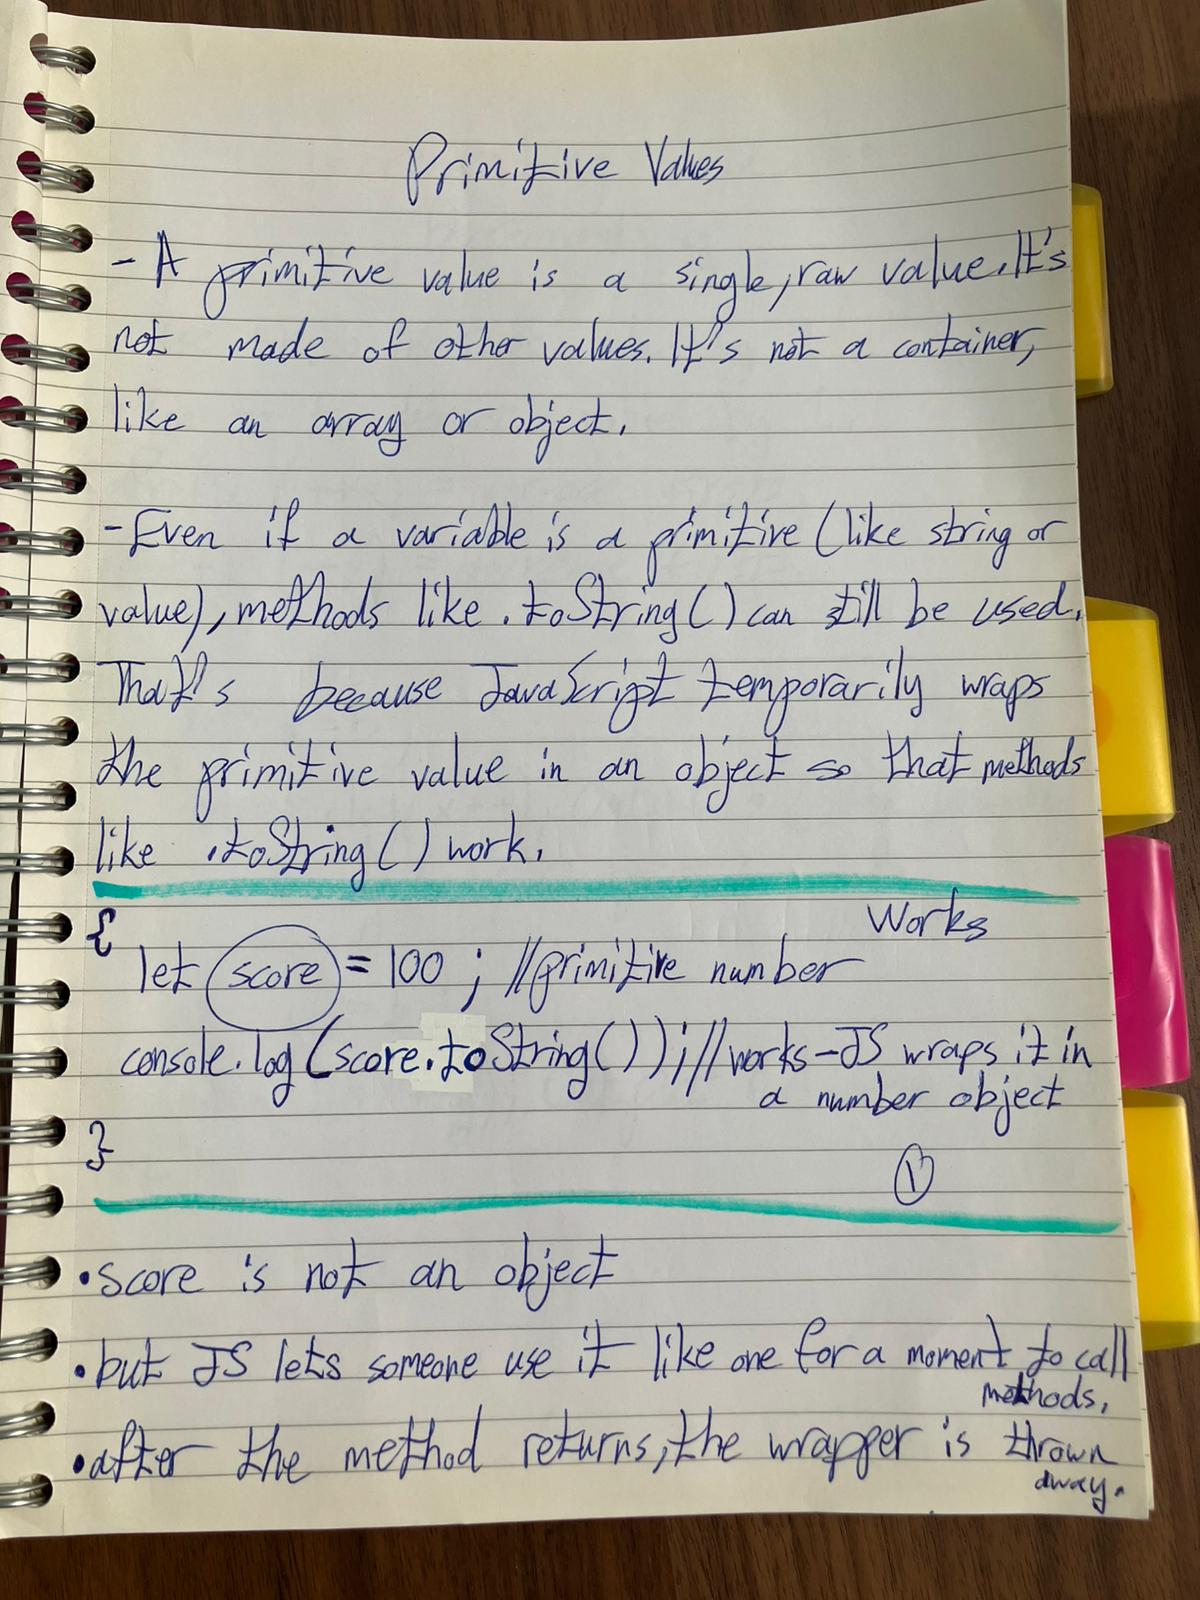 Primitive Values
- A primitive value is a single, raw value. It's
not made of other values. It's not a container,
like an array or object.
- Even if a variable is a primitive (like string or
value), methods like .toString() can still be used.
That's because JavaScript temporarily wraps
the primitive value in an object so that methods
like .toString() work.
Works
{
let score = 100 ; //primitive number
console.log(score.toString());//works-JS wraps it in
a number object
}
1
•score is not an object
•but JS lets someone use it like one for a moment to call
methods,
•after the method returns, the wrapper is thrown
away.